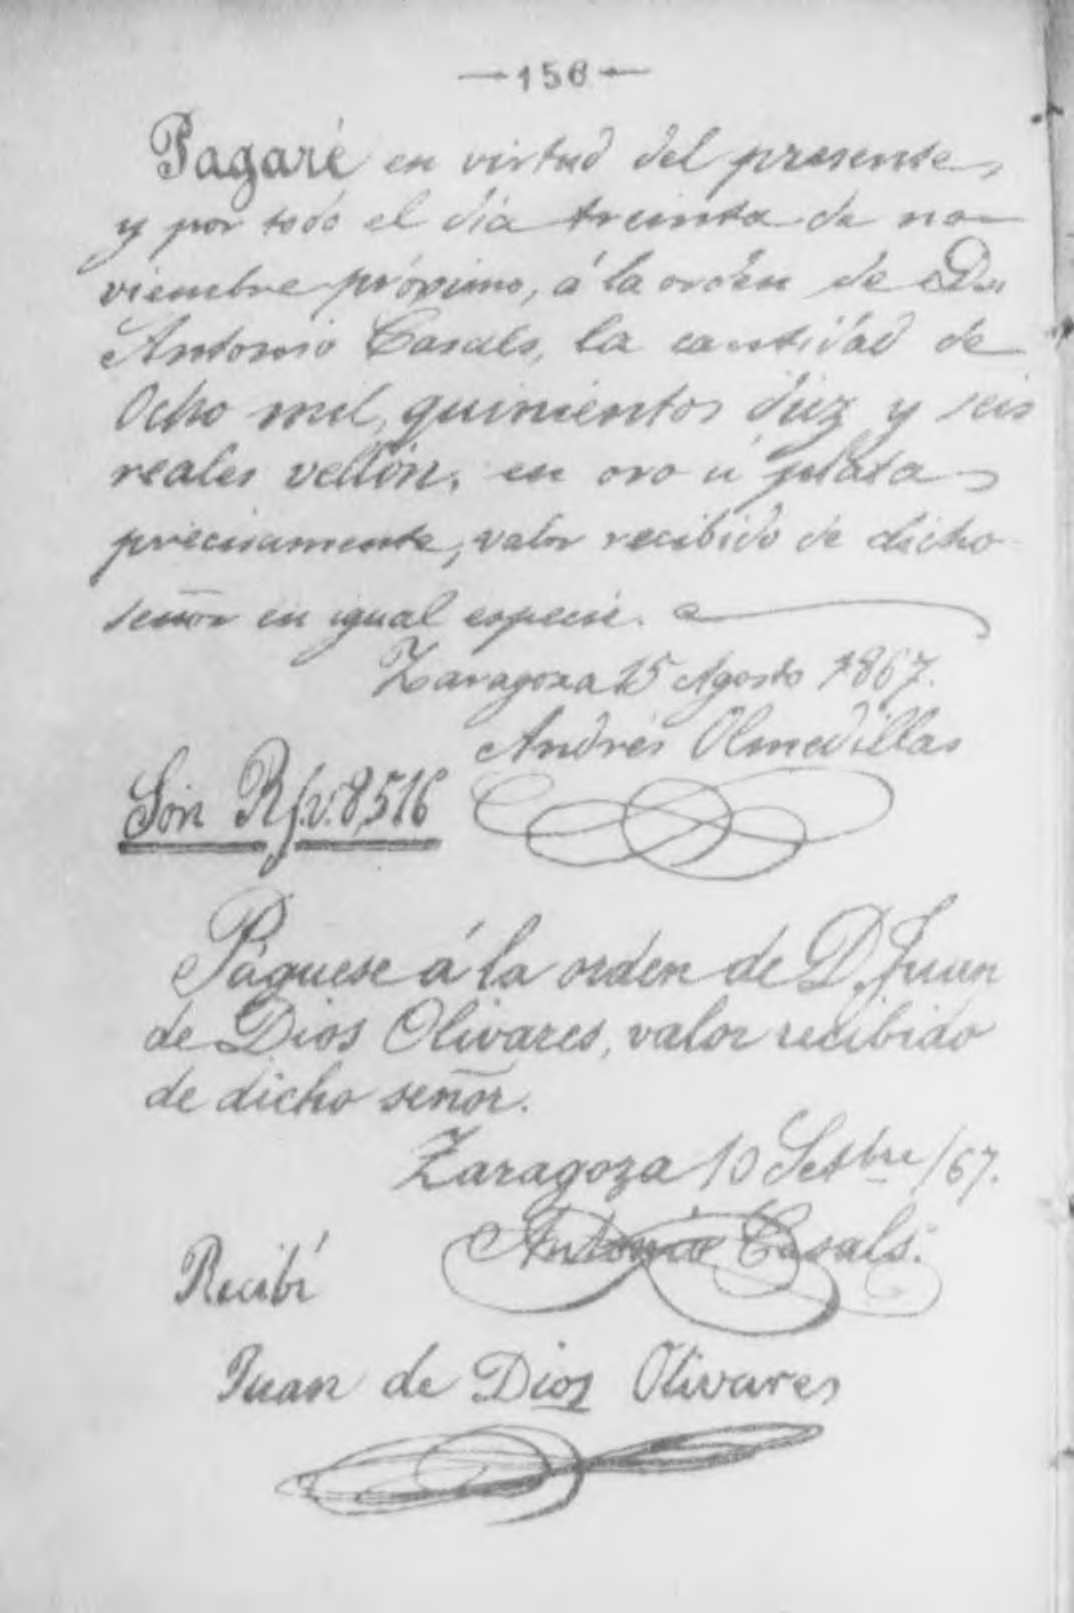 —156—
Pagaré en virtud del presente
y por todo el día treinta de no-
viembre próximo, á la orden de Dn
Antonio Casals, la cantidad de
Ocho mil, quinientos diez y seis
reales vellón, en oro ú plata
precisamente, valor recibido de dicho
señor en igual especie.
Zaragoza 15 Agosto 1867.
Andrés Olmedillas
Son R/v. 8,516
Páguese á la orden de D. Juan
de Dios Olivares, valor recibido
de dicho señor.
Zaragoza 10 Setbre /67.
Antonio Casals.
Recibí
Juan de Dios Olivares